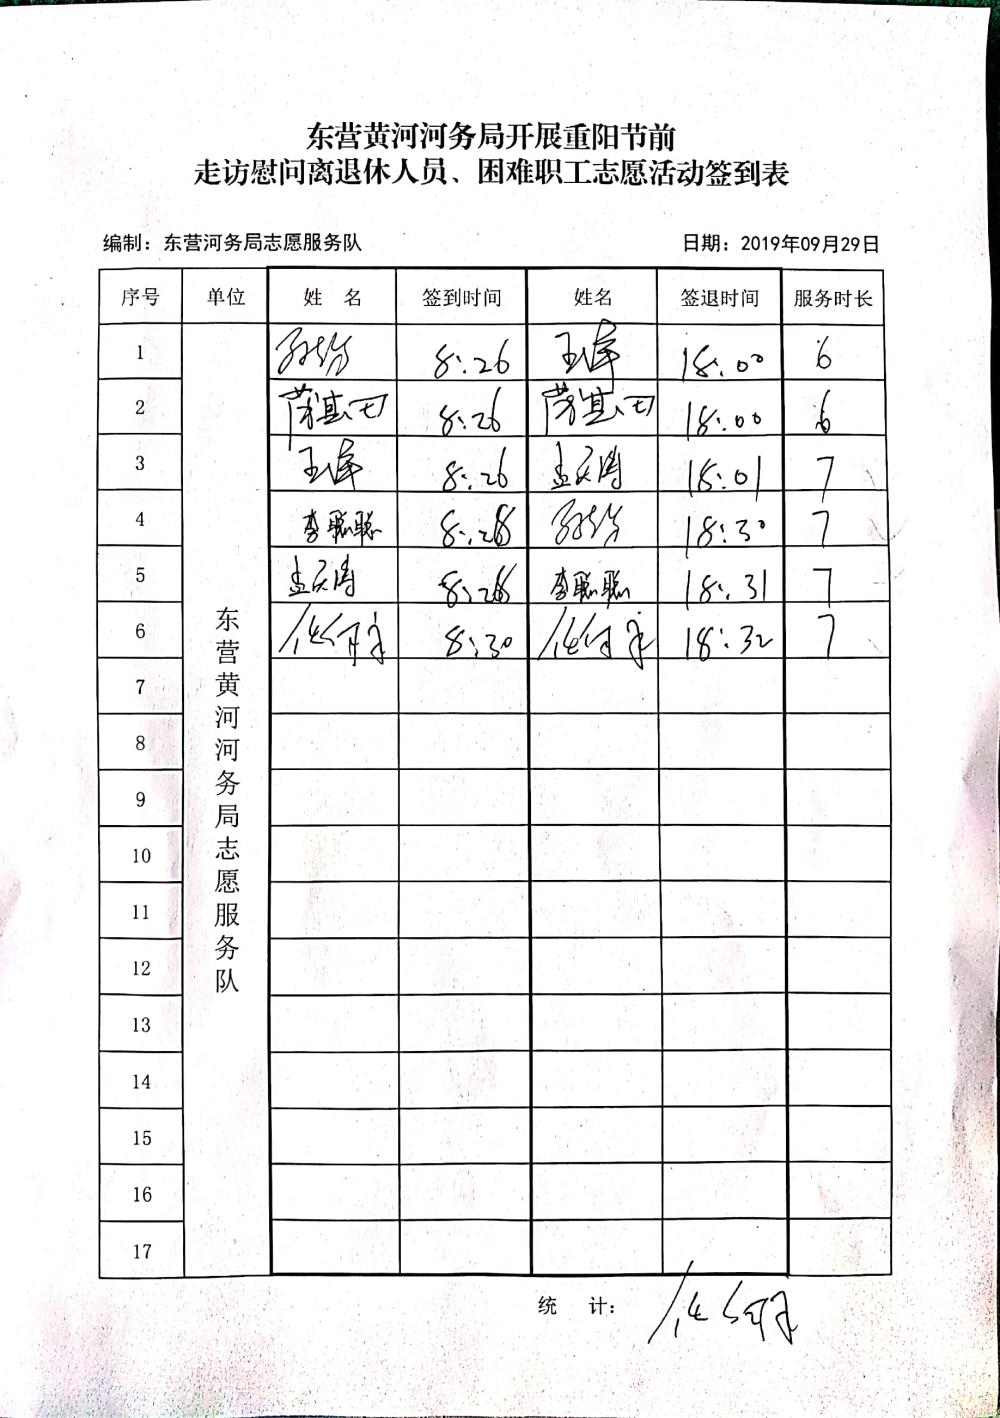 东营黄河河务局开展重阳节前
走访慰问离退休人员、困难职工志愿活动签到表
编制：东营河务局志愿服务队 日期：2019年09月29日
序号 单位 姓 名 签到时间 姓名 签退时间 服务时长
东营黄河河务局志愿服务队
1 8:26 王萍 18:00 6
2 8:26 18:00 6
3 王萍 8:26 孟庆涛 18:01 7
4 李聪聪 8:28 18:30 7
5 孟庆涛 8:28 李聪聪 18:31 7
6 8:30 18:32 7
7
8
9
10
11
12
13
14
15
16
17
统 计：